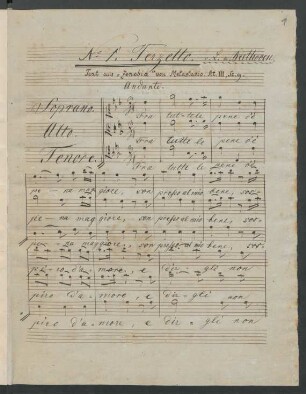 1
No 1. Terzetto. L. v. Beethoven.
Text aus „Zenobia" von Metastasio. At. III, Sc. 9.
Andante.
Soprano. Fra tut-te le pene v'è
Alto. Fra tutte le pene v'è
Tenore. Fra tutte le pene v'è
pe-na maggiore, son presso al mio bene, sos-
pe-na maggiore, son presso al mio bene, sos-
pe-na maggiore, son presso al mio bene, sos-
piro d'amore, e dir-gli non
piro d'a-more, e dir-gli non
piro d'a-more, e dir-gli non